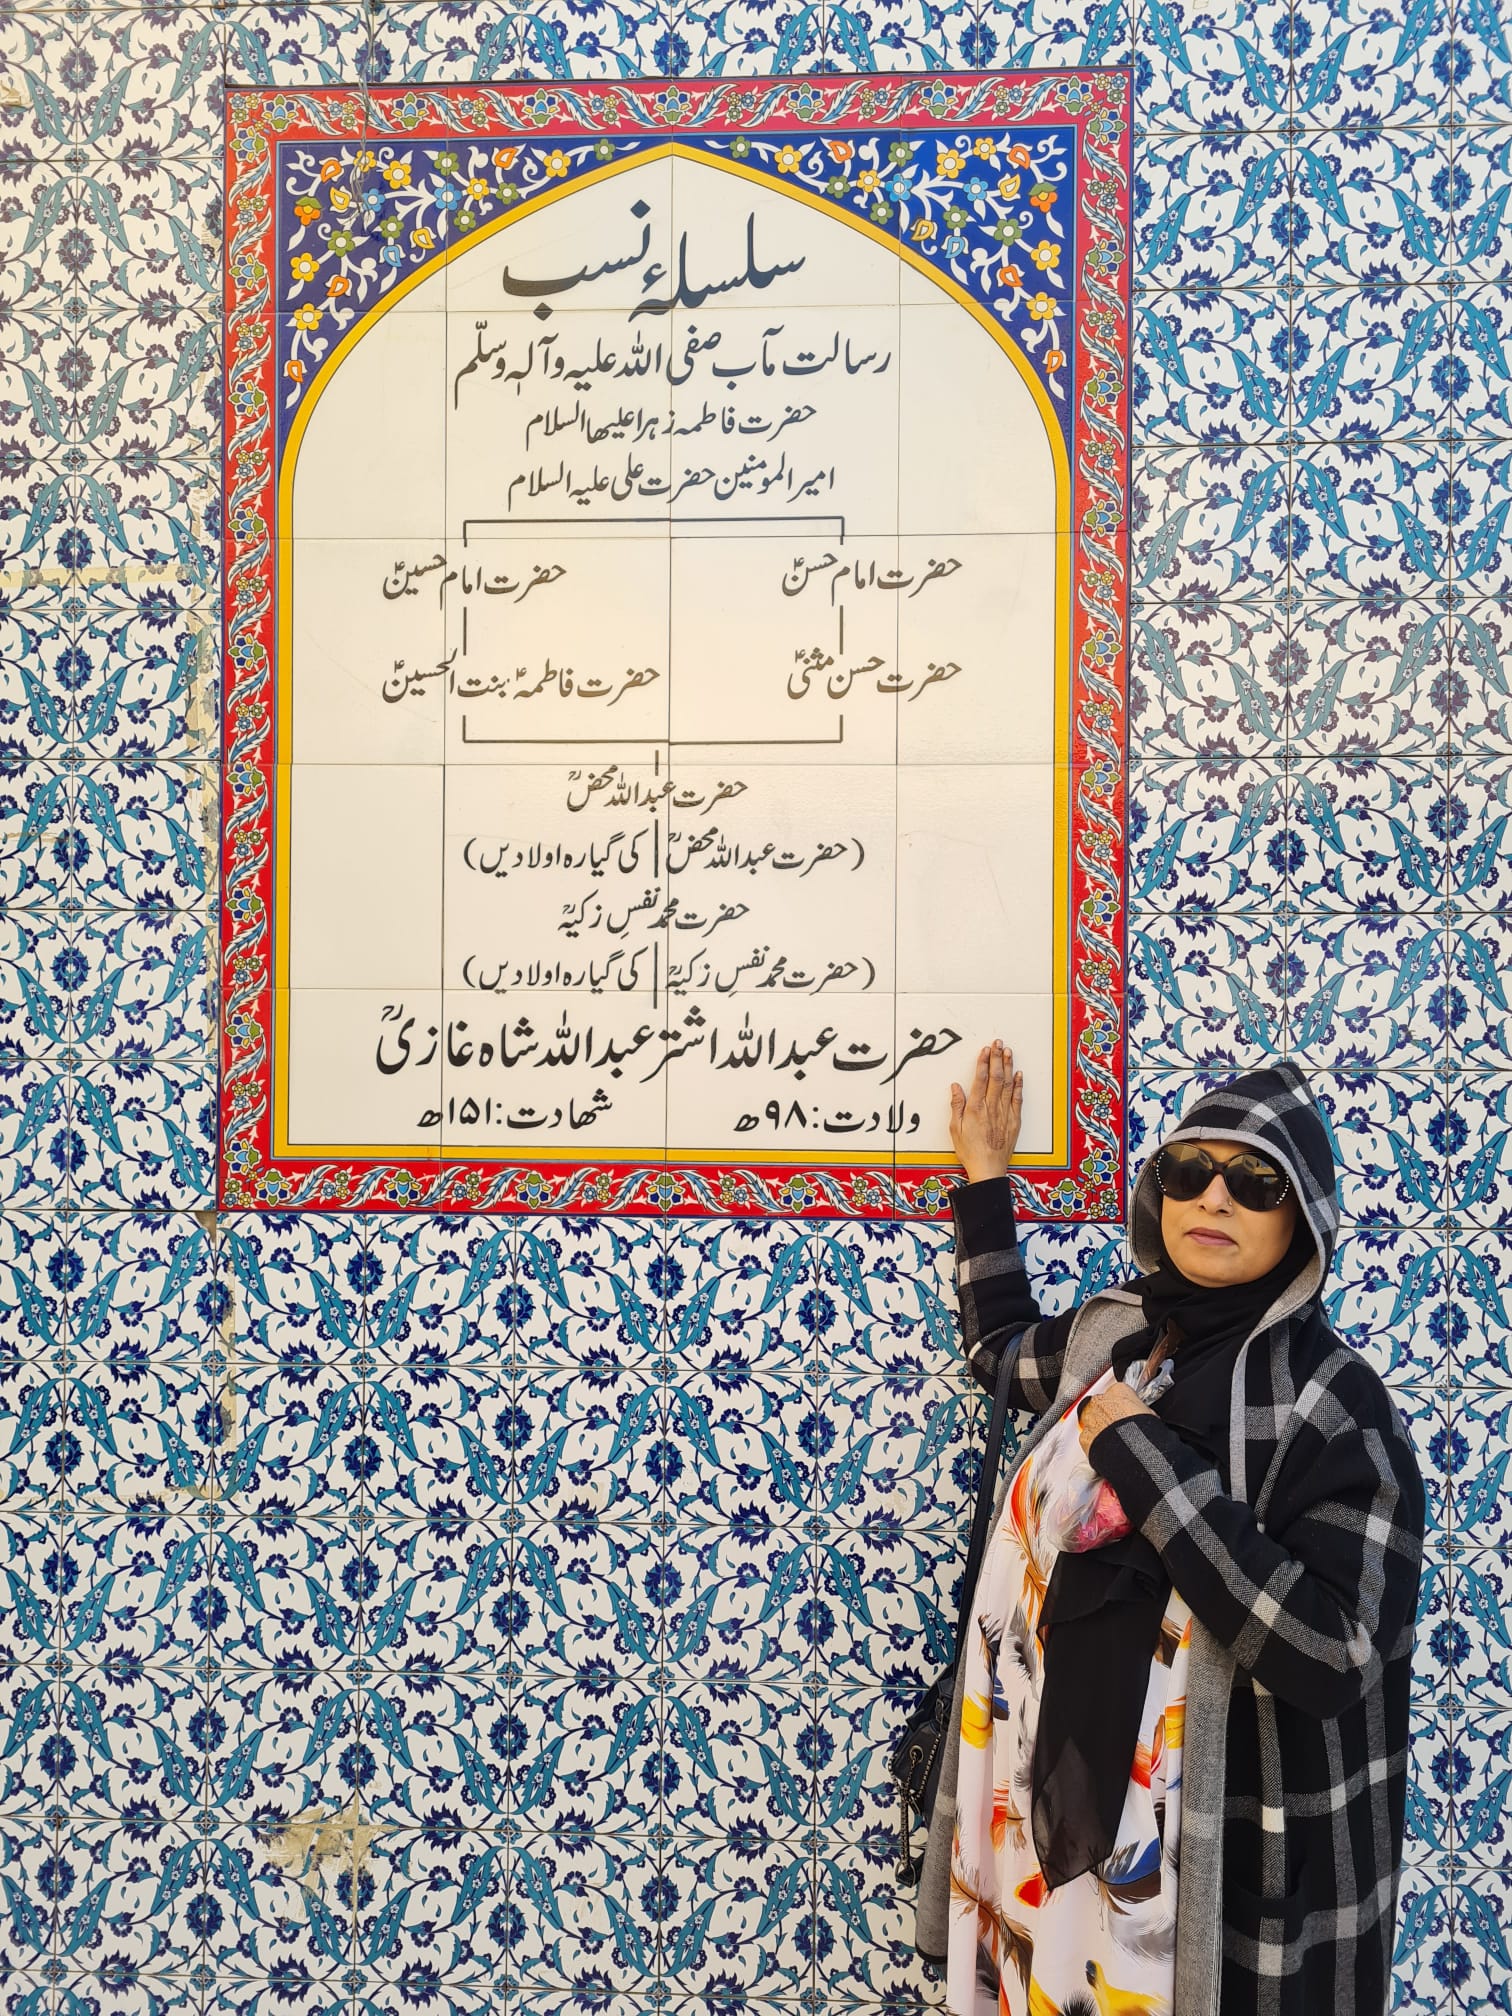 سلسلۂ نسب
رسالت مآب صفی اللہ علیہ وآلہٖ وسلّم
حضرت فاطمہ زہرا علیھا السلام
امیر المومنین حضرت علی علیہ السلام
حضرت امام حسنؑ حضرت امام حسینؑ
حضرت حسن مثنیؑ حضرت فاطمہؑ بنت الحسینؑ
حضرت عبداللہ محضؒ
(حضرت عبداللہ محضؒ کی گیارہ اولادیں)
حضرت محمد نفسِ زکیہؒ
(حضرت محمد نفسِ زکیہؒ کی گیارہ اولادیں)
حضرت عبداللہ اشتر عبداللہ شاہ غازیؒ
ولادت: ۹۸ھ شھادت: ۱۵۱ھ